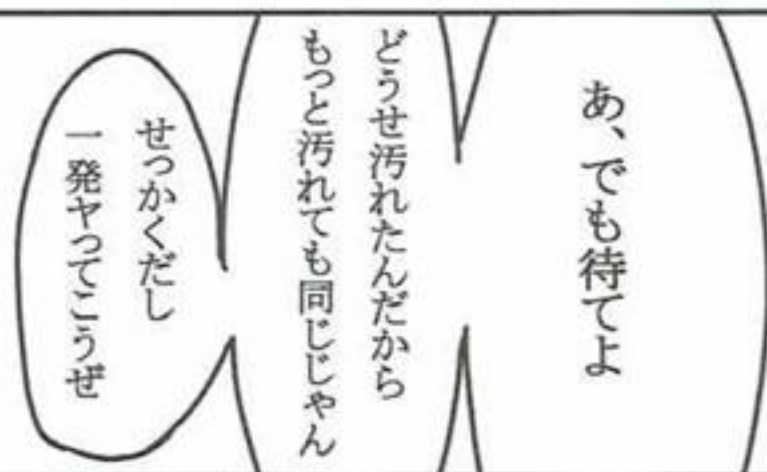 あ、でも待てよ
どうせ汚れたんだから
もっと汚れても同じじゃん
せっかくだし
一発ヤってこうぜ